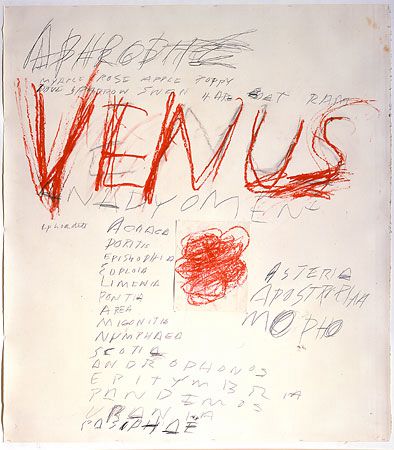 APHRODITE
MYRTLE ROSE APPLE POPPY
DOVE SPARROW SWAN HARE RAM
VENUS
ANADYOMENE
DORITIS
EPISTROPHIA
EUPLOIA
LIMENIA
PONTIA
AREA
MIGONITIS
NYMPHAEA
SCOTIA
ANDROPHONOS
EPITYMBRIA
PANDEMOS
URANIA
PASIPHAE
ASTERIA
APOSTROPHIA
MORPHO